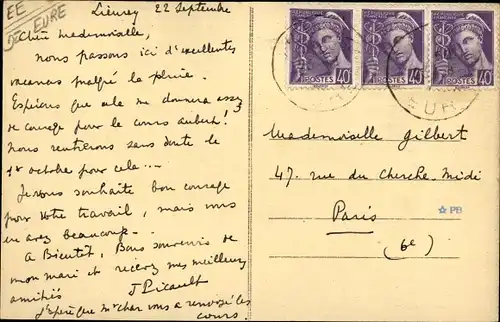 EE
DE EURE
Lieurey 22 Septembre
Chère Mademoiselle,
nous passons ici d'excellentes
vacances malgré la pluie.
Espérons que cela me donnera assez
de courage pour le cours Aubert!
Nous rentrerons sans doute le
1er octobre pour cela...
Je vous souhaite bon courage
pour votre travail, mais vous
en avez beaucoup.
A Bientôt, Bons souvenirs de
mon mari et recevez mes meilleures
amitiés
J Picault
J'espère que Mr Char vous a renvoyé les
cours.
POSTES 40c
POSTES 40c
POSTES 40c
EUR
Mademoiselle Gilbert
47. rue du Cherche-Midi
Paris
(6e)
PB